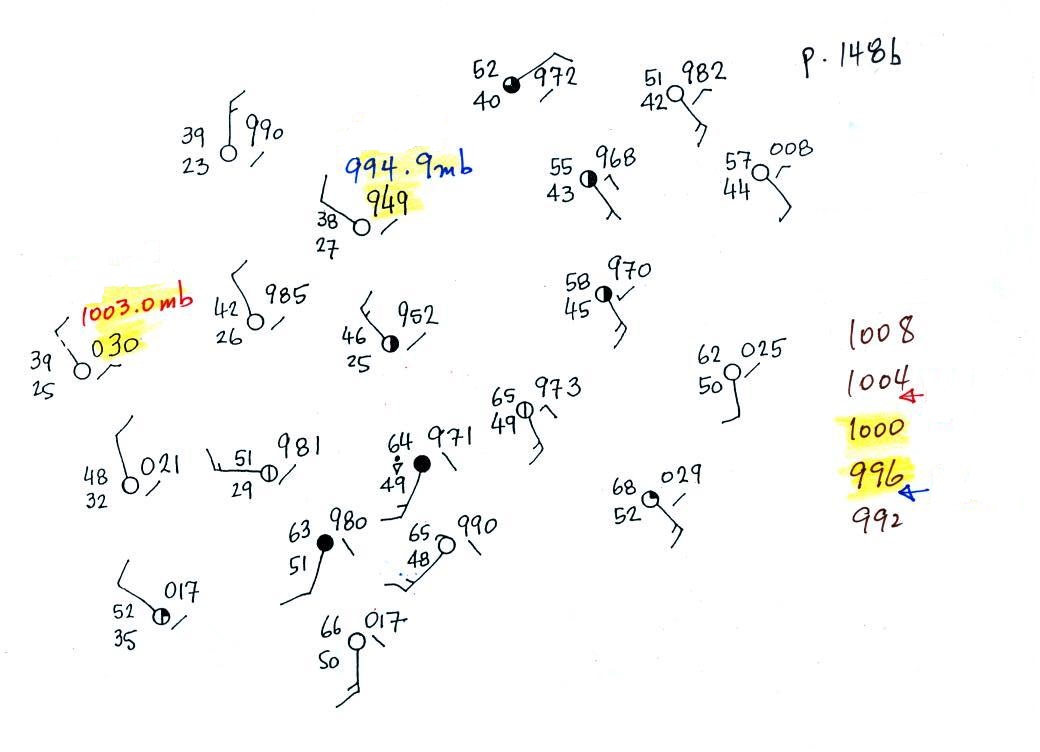 p. 148b
52 972
40
51 982
42
39 990
23
994.9mb
55 968
43
57 008
44
949
38
27
1003.0mb
42 985
26
58 970
45
030
39
25
46 952
25
1008
62 025
50
1004
65 973
49
1000
51 981
29
64 971
49
48 021
32
996
68 029
52
992
63 980
51
65 990
48
52 017
35
66 017
50